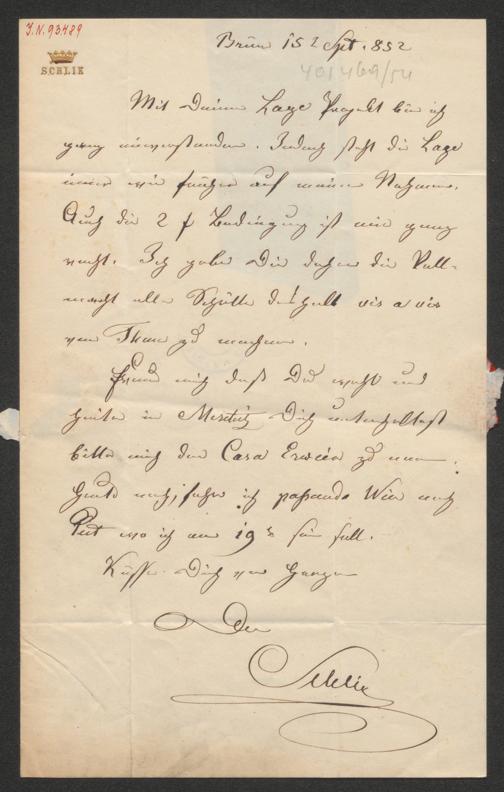 J.N. 93489
SCHLIK
Brünn 15 t Spt. 852
401469/54
Mit Deinem Loge Projekt bin ich
ganz einverstanden. Jedoch steht die Loge
immer wie früher auf meinen Nahmen.
Auch die 2 f Bedingung ist mir ganz
recht. Ich gebe Dir daher die Voll-
macht alle Schritte deshalb vis a vis
von Thun zu machen.
Freue mich daß Du wohl und
heiter in Dich unterhaltest
bitte mich der Cara Erwein zu
Heute noch fahre ich Wien nach
Pest wo ich am 19t sein soll.
Küsse Dich von Herzen
Dein
Schlik